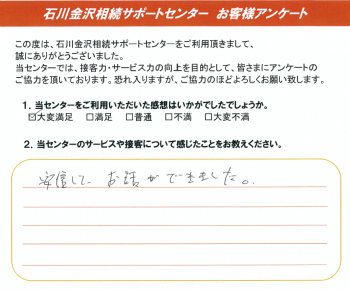 石川金沢相続サポートセンター お客様アンケート
この度は、石川金沢相続サポートセンターをご利用頂きまして、
誠にありがとうございました。
当センターでは、接客力・サービス力の向上を目的として、皆さまにアンケートの
ご協力を頂いております。恐れ入りますが、ご協力のほどよろしくお願い致します。
1. 当センターをご利用いただいた感想はいかがでしたでしょうか。
☑大変満足 □満足 □普通 □不満 □大変不満
2. 当センターのサービスや接客について感じたことをお教えください。
安信して お話ができました。